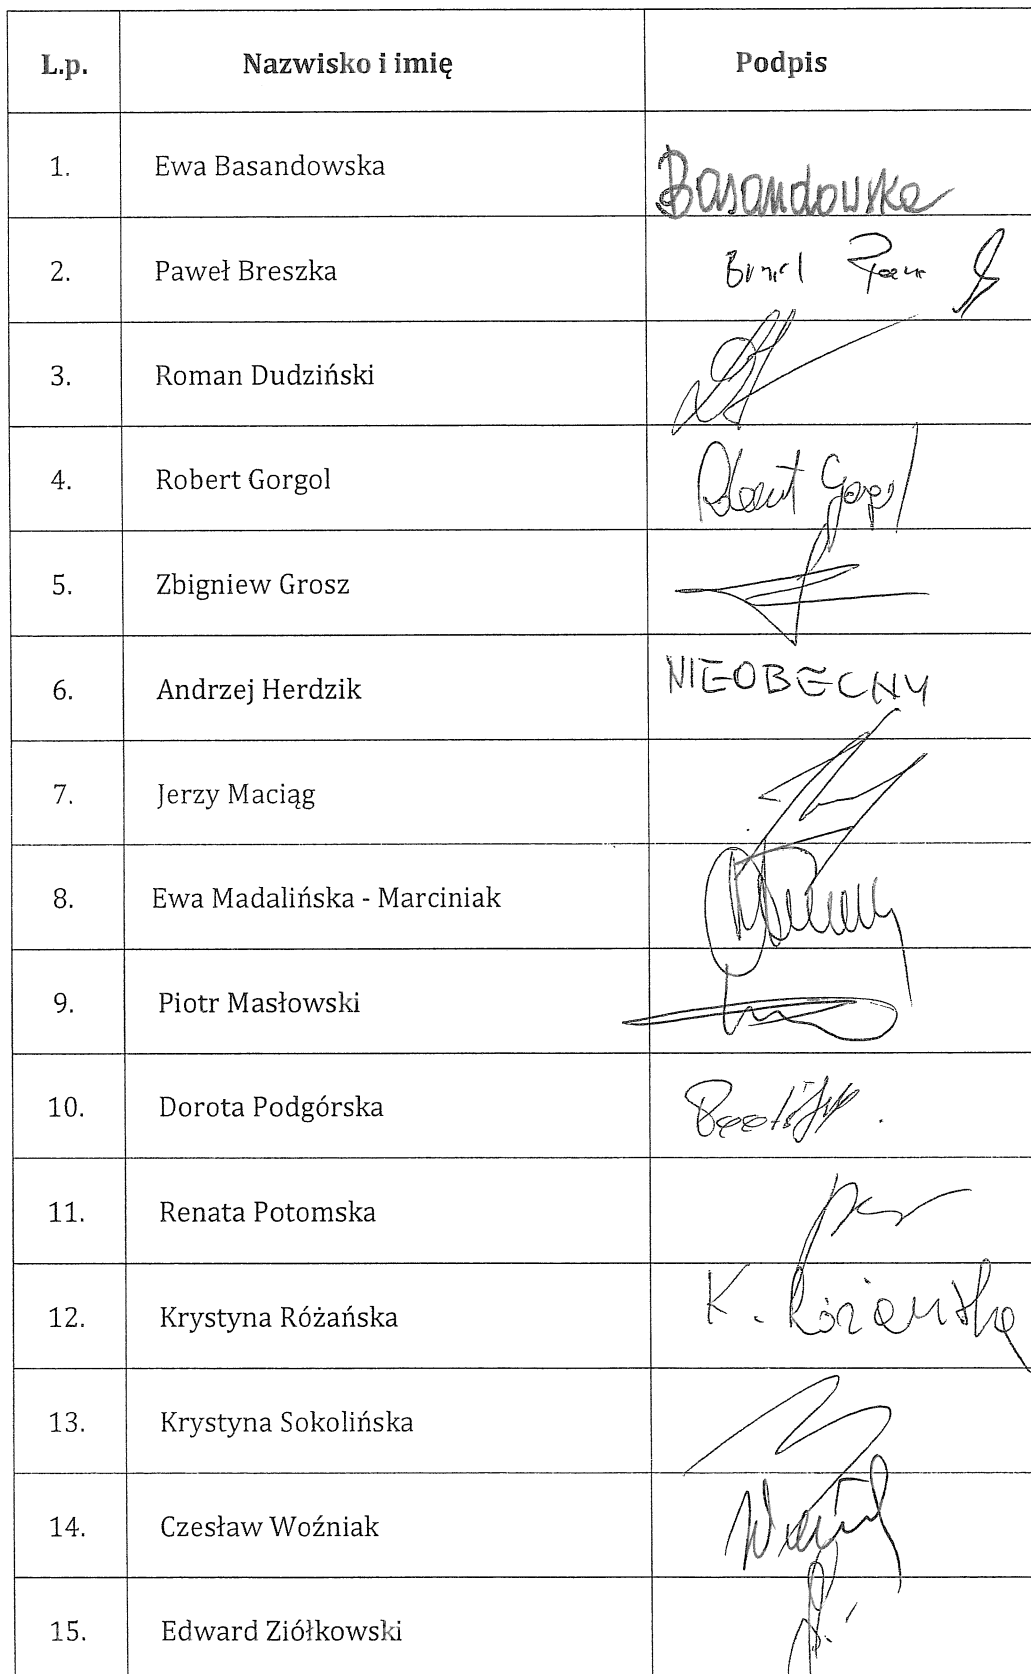 L.p. Nazwisko i imię Podpis
1. Ewa Basandowska Basandowska
2. Paweł Breszka
3. Roman Dudziński
4. Robert Gorgol Robert Gorgol
5. Zbigniew Grosz
6. Andrzej Herdzik NIEOBECNY
7. Jerzy Maciąg
8. Ewa Madalińska - Marciniak
9. Piotr Masłowski
10. Dorota Podgórska
11. Renata Potomska
12. Krystyna Różańska K. Różańska
13. Krystyna Sokolińska
14. Czesław Woźniak
15. Edward Ziółkowski